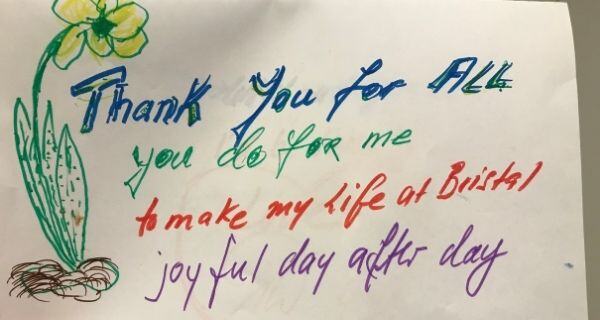 Thank You for ALL
you do for me
to make my life at Bristol
joyful day after day